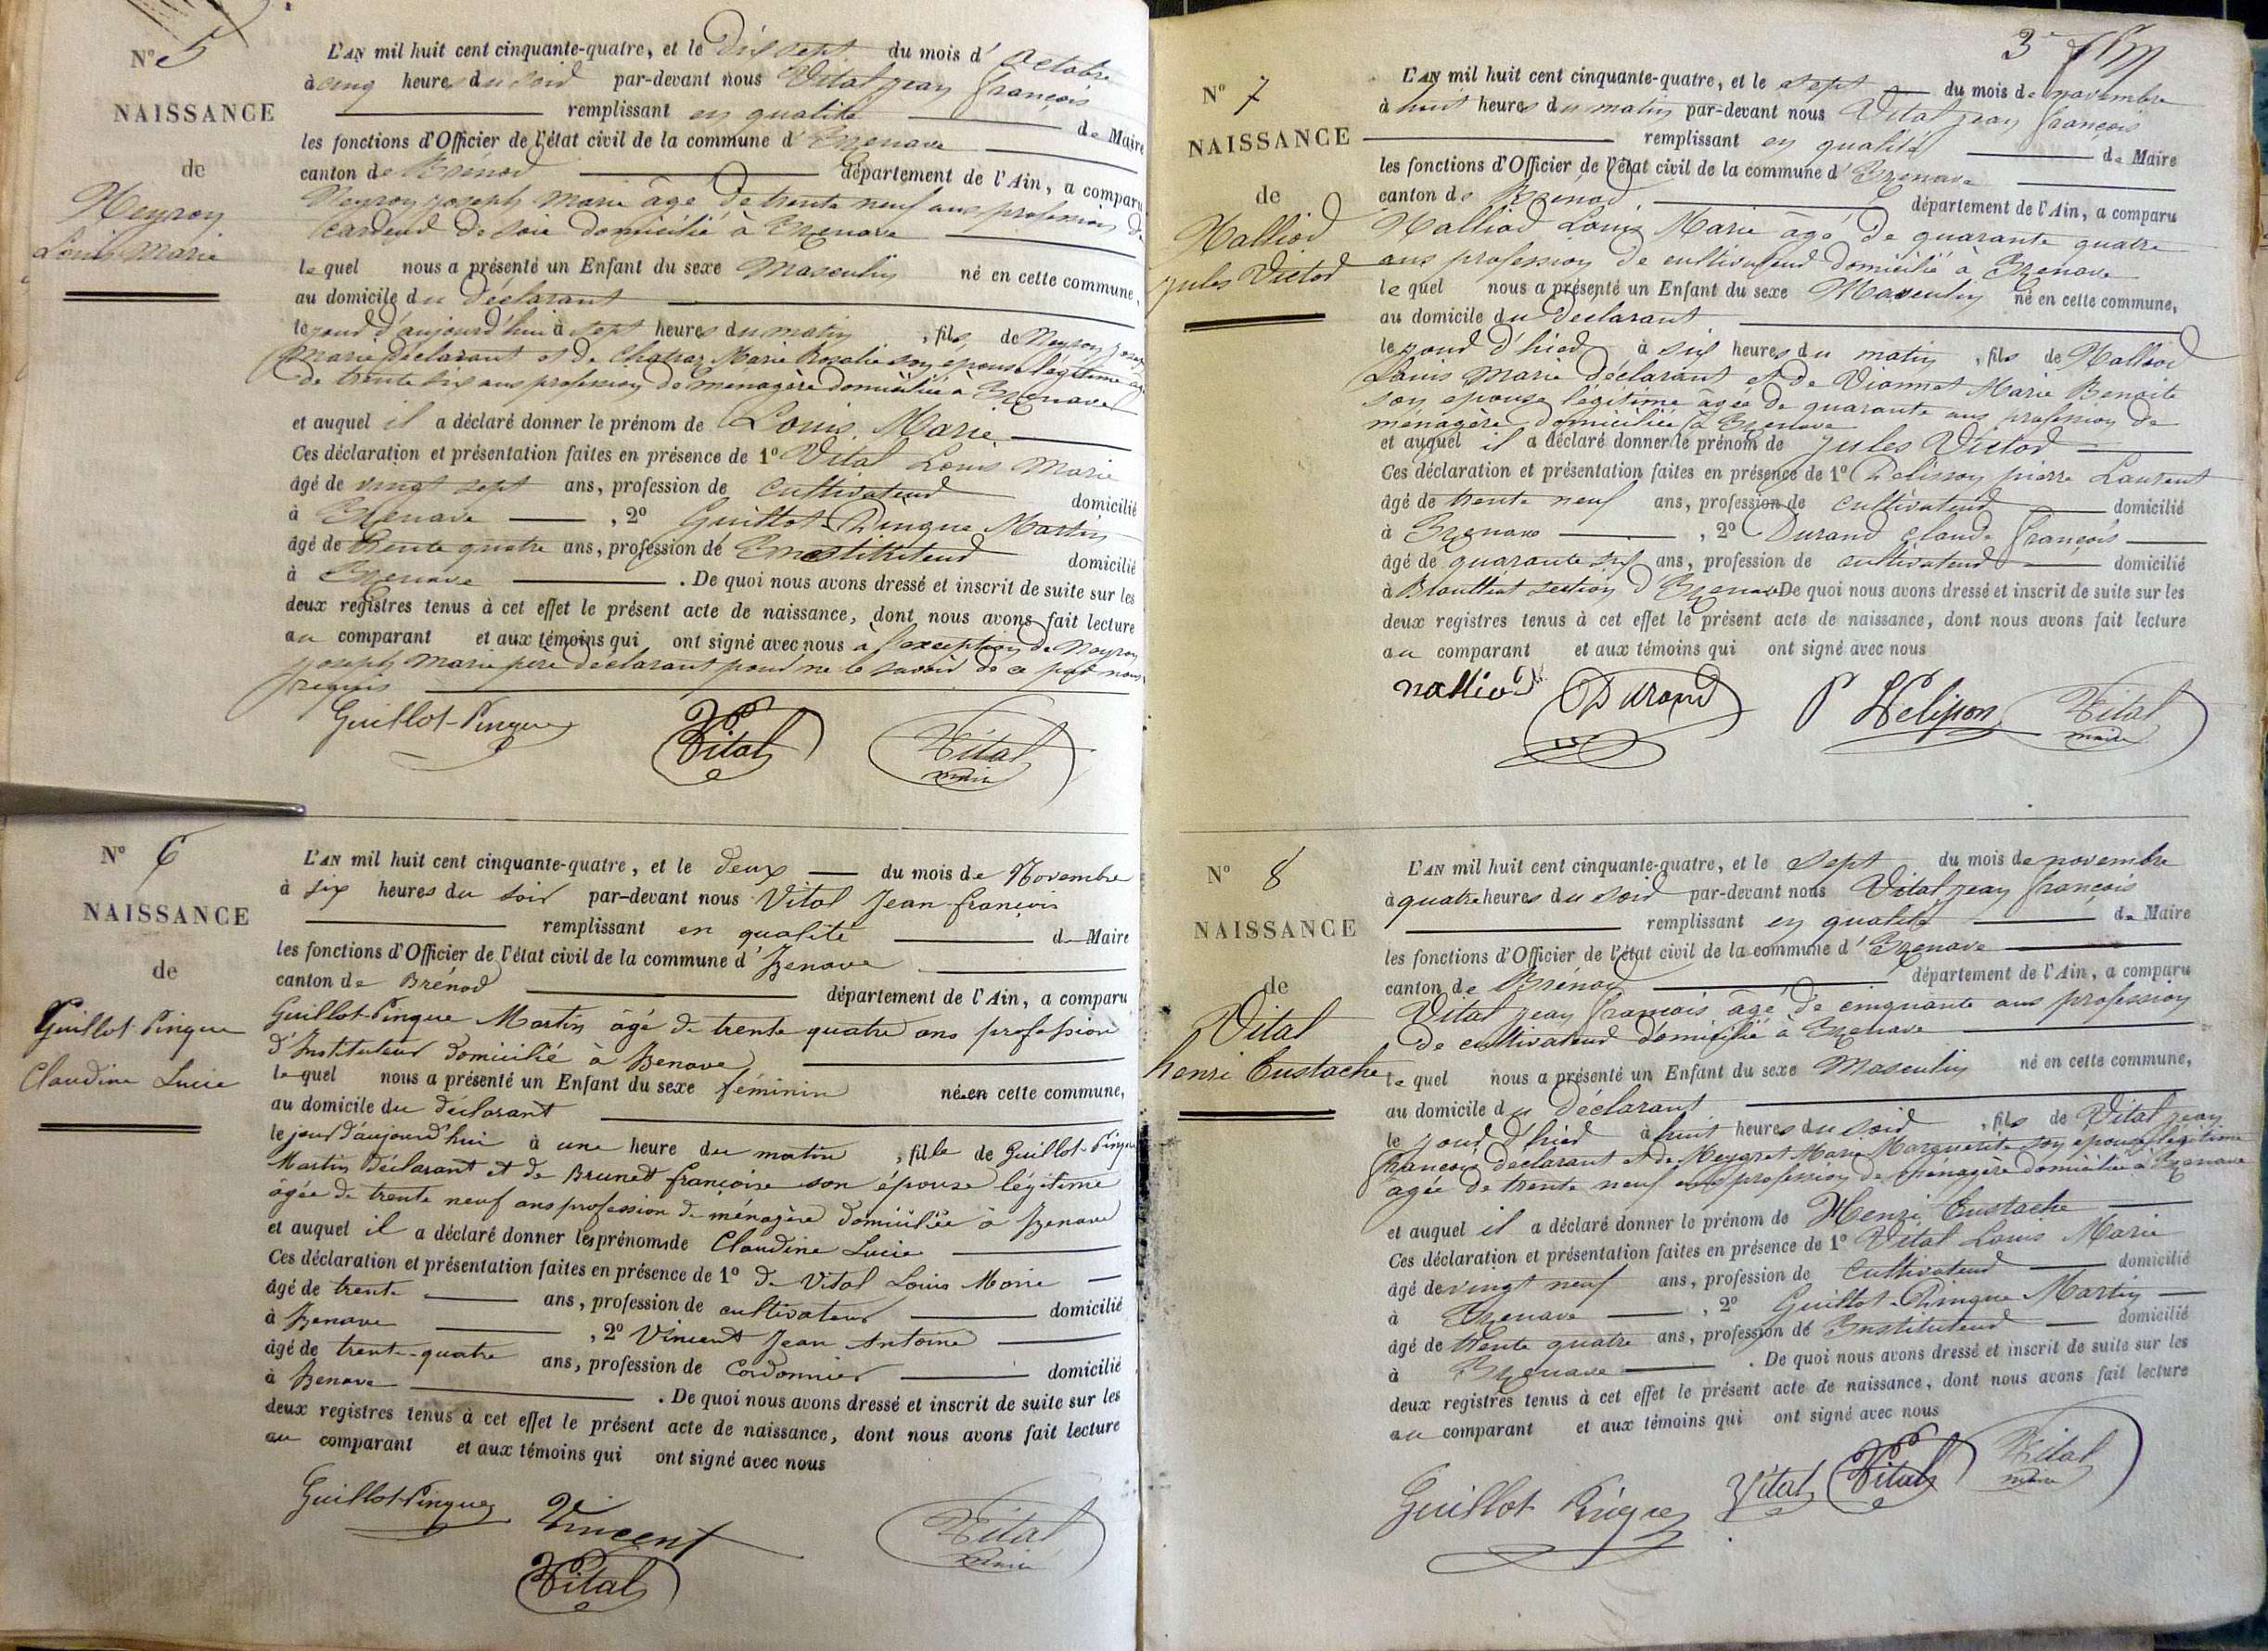 N° 5
NAISSANCE
de
Neyron
Louis Marie
L'AN mil huit cent cinquante-quatre, et le dix sept du mois d' Octobre
à cinq heures du soir par-devant nous Vital jean françois
remplissant en qualité de Maire
les fonctions d'Officier de l'état civil de la commune d' Izenave
canton de Brénod département de l'Ain, a comparu
Neyron joseph Marie âgé de trente neuf ans profession de
cardeur de soie domicilié à Izenave
lequel nous a présenté un Enfant du sexe Masculin né en cette commune,
au domicile du déclarant
le jour d'aujourd'hui à sept heures du matin, fils de Neyron joseph
Marie déclarant et de Marie Rosalie son epouse légitime agée
de trente six ans profession de ménagère domiciliée à Izenave
et auquel il a déclaré donner le prénom de Louis Marie
Ces déclaration et présentation faites en présence de 1° Vital Louis Marie
âgé de vingt sept ans, profession de cultivateur domicilié
à Izenave, 2° Guillot-Pingue Martin
âgé de trente quatre ans, profession de Instituteur domicilié
à Izenave. De quoi nous avons dressé et inscrit de suite sur les
deux registres tenus à cet effet le présent acte de naissance, dont nous avons fait lecture
au comparant et aux témoins qui ont signé avec nous à l'exception de Neyron
joseph Marie père déclarant pour ne le savoir de ce par nous
requis
Guillot-Pingue Vital Vital
maire
N° 6
NAISSANCE
de
Guillot-Pingue
Claudine Lucie
L'AN mil huit cent cinquante-quatre, et le deux du mois de Novembre
à six heures du soir par-devant nous Vital Jean-françois
remplissant en qualité de Maire
les fonctions d'Officier de l'état civil de la commune d' Izenave
canton de Brénod département de l'Ain, a comparu
Guillot-Pingue Martin âgé de trente quatre ans profession
d'Instituteur domicilié à Izenave
lequel nous a présenté un Enfant du sexe féminin né en cette commune,
au domicile du déclarant
le jour d'aujourd'hui à une heure du matin, fille de Guillot-Pingue
Martin déclarant et de Brunet françoise son épouse légitime
âgée de trente neuf ans profession de ménagère domiciliée à Izenave
et auquel il a déclaré donner les prénoms de Claudine Lucie
Ces déclaration et présentation faites en présence de 1° de Vital Louis Marie
âgé de trente ans, profession de cultivateur domicilié
à Izenave, 2° Vincent Jean Antoine
âgé de trente-quatre ans, profession de Cordonnier domicilié
à Izenave. De quoi nous avons dressé et inscrit de suite sur les
deux registres tenus à cet effet le présent acte de naissance, dont nous avons fait lecture
au comparant et aux témoins qui ont signé avec nous
Guillot-Pingue Vincent Vital
maire
Vital
3e
N° 7
NAISSANCE
de
Nalliod
jules Victor
L'AN mil huit cent cinquante-quatre, et le sept du mois de novembre
à huit heures du matin par-devant nous Vital jean françois
remplissant en qualité de Maire
les fonctions d'Officier de l'état civil de la commune d' Izenave
canton de Brénod département de l'Ain, a comparu
Nalliod Louis Marie âgé de quarante quatre
ans profession de cultivateur domicilié à Izenave
lequel nous a présenté un Enfant du sexe Masculin né en cette commune,
au domicile du déclarant
le jour d'hier à six heures du matin, fils de Nalliod
Louis Marie déclarant et de Vionnet Marie Benoite
son epouse légitime agée de quarante ans profession de
ménagère domiciliée à Izenave
et auquel il a déclaré donner le prénom de jules Victor
Ces déclaration et présentation faites en présence de 1° Pelisson pierre Laurent
âgé de trente neuf ans, profession de cultivateur domicilié
à Izenave, 2° Durand Claude françois
âgé de quarante six ans, profession de cultivateur domicilié
à section d'Izenave De quoi nous avons dressé et inscrit de suite sur les
deux registres tenus à cet effet le présent acte de naissance, dont nous avons fait lecture
au comparant et aux témoins qui ont signé avec nous
nalliod Durand P Pelisson Vital
maire
N° 8
NAISSANCE
de
Vital
henri Eustache
L'AN mil huit cent cinquante-quatre, et le sept du mois de novembre
à quatre heures du soir par-devant nous Vital jean françois
remplissant en qualité de Maire
les fonctions d'Officier de l'état civil de la commune d' Izenave
canton de Brénod département de l'Ain, a comparu
Vital jean françois âgé de cinquante ans profession
de cultivateur domicilié à Izenave
lequel nous a présenté un Enfant du sexe Masculin né en cette commune,
au domicile du déclarant
le jour d'hier à huit heures du soir, fils de Vital jean
françois déclarant et de Meygret Marie Marguerite son épouse légitime
agée de trente neuf ans profession de ménagère domiciliée à Izenave
et auquel il a déclaré donner le prénom de Henri Eustache
Ces déclaration et présentation faites en présence de 1° Vital Louis Marie
âgé de vingt neuf ans, profession de cultivateur domicilié
à Izenave, 2° Guillot-Pingue Martin
âgé de trente quatre ans, profession de Instituteur domicilié
à Izenave. De quoi nous avons dressé et inscrit de suite sur les
deux registres tenus à cet effet le présent acte de naissance, dont nous avons fait lecture
au comparant et aux témoins qui ont signé avec nous
Guillot Pingue Vital Vital Vital
maire